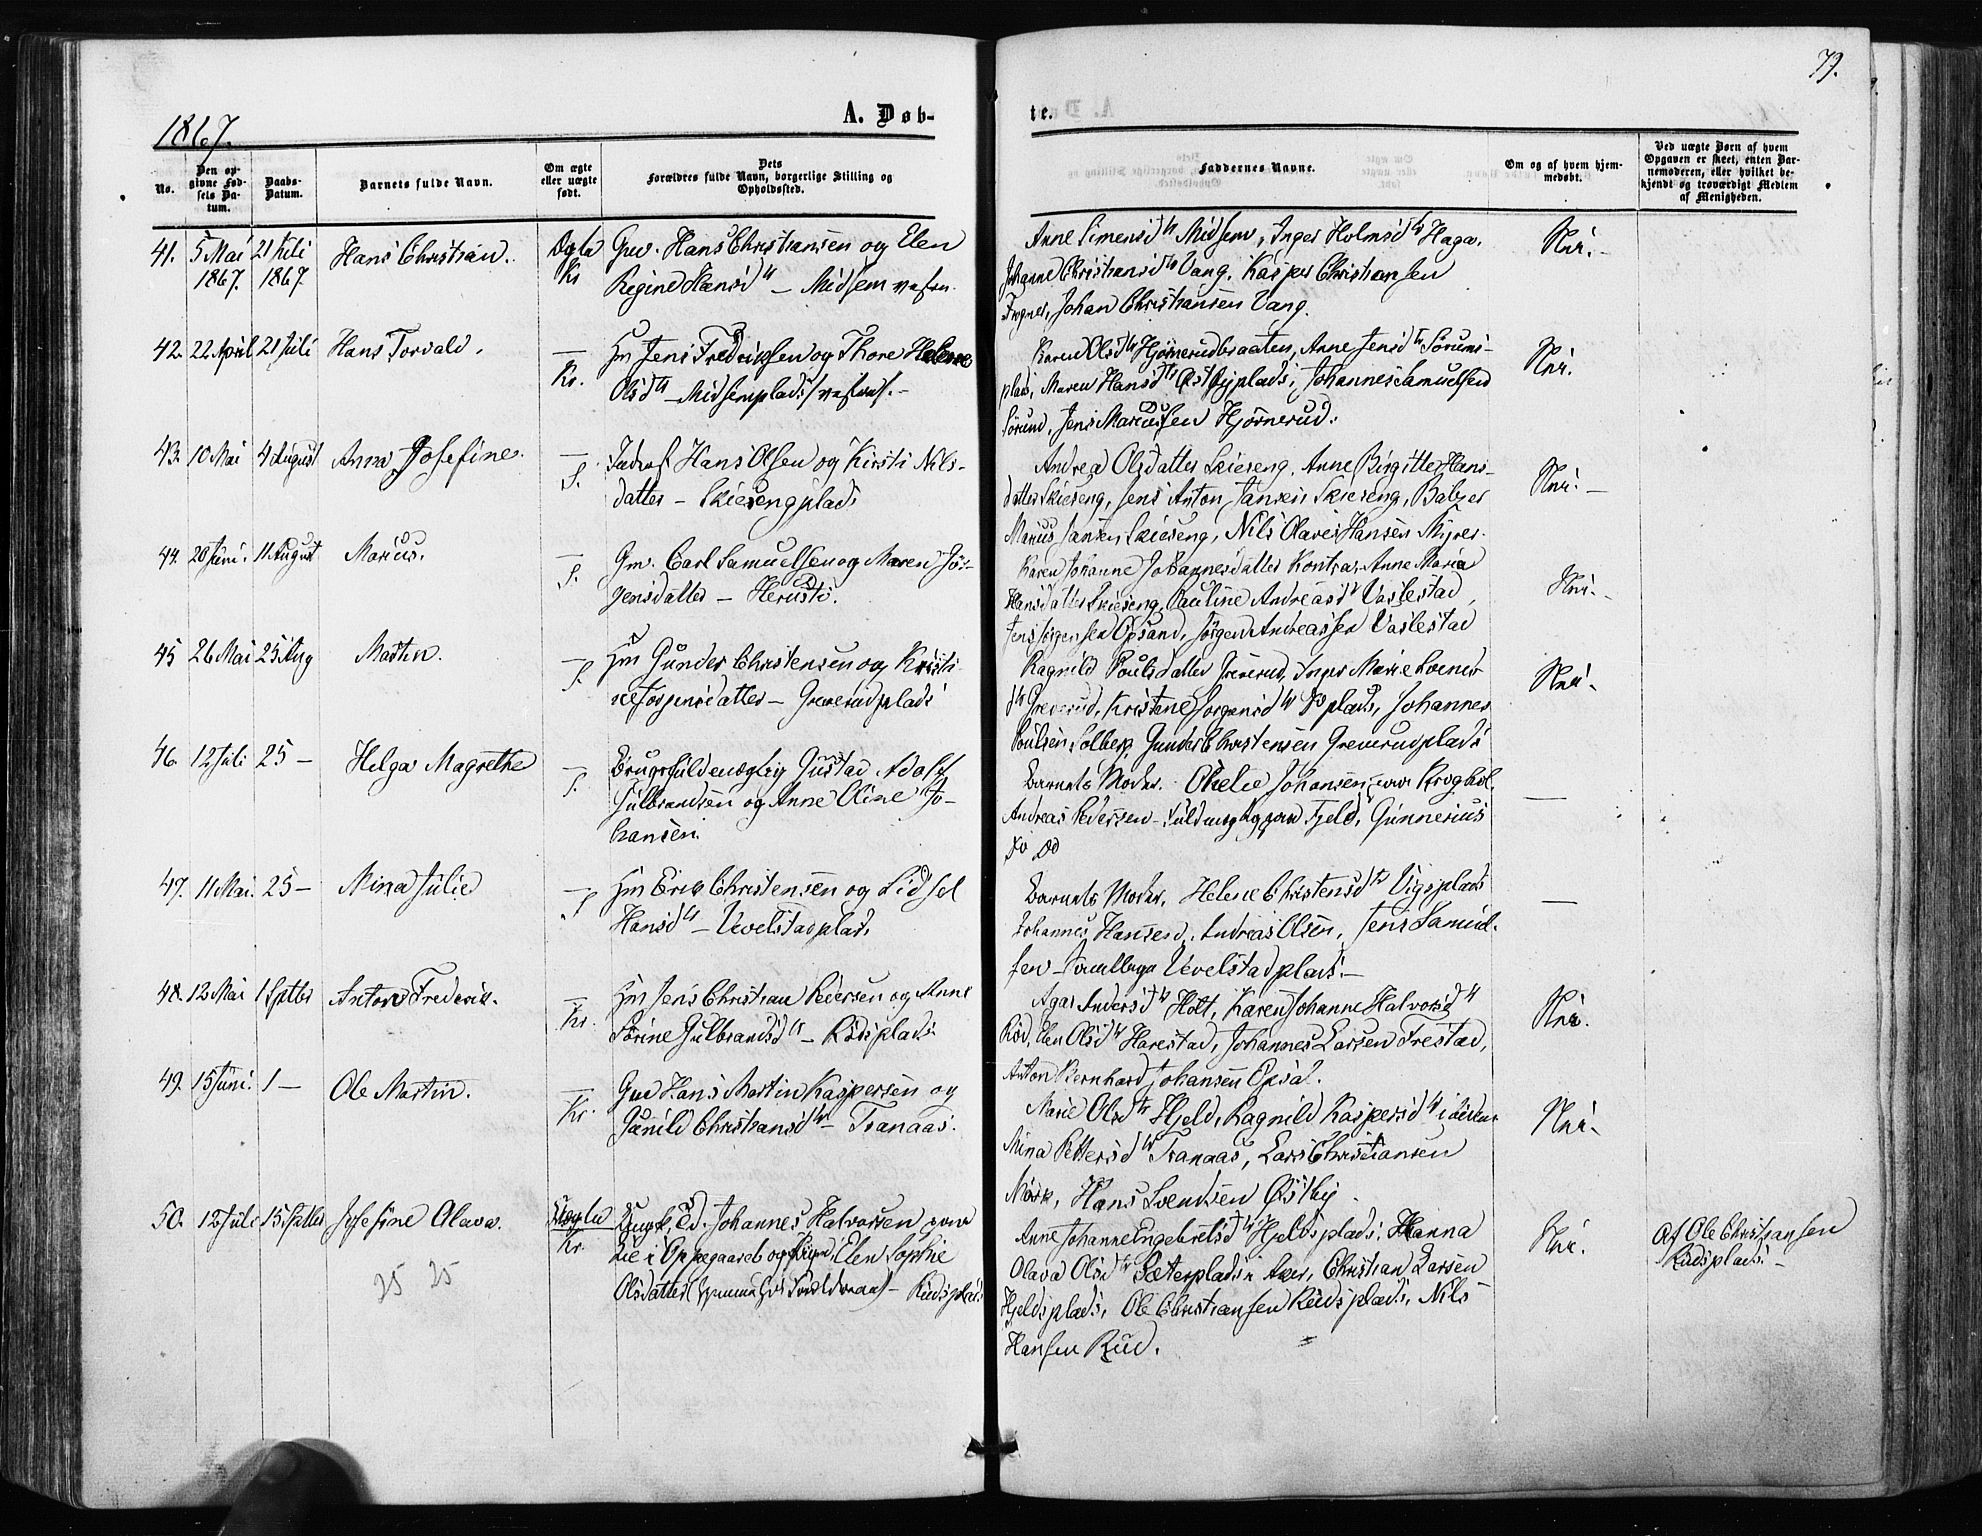 79.
1867.
A. Døb-
te.
No.
Den op-
givne Fød-
sels Da-
tum.
Daabs-
Datum.
Barnets fulde Navn.
Om ægte
eller uægte
født.
Dets
Forældres fulde Navn, borgerlige Stilling og
Opholdssted.
Faddernes Navne.
Om og af hvem hjem-
medøbt.
Ved uægte Børn af hvem
Opgaven er skeet, enten Bar-
nemoderen, eller hvilket be-
kjendt og troværdigt Medlem
af Menigheden.
41. 5 Mai 1867. 21 Juli 1867 Hans Christian. Ægte Kr
Gm. Hans Christiansen og Elen
Regine Hansdtr – Midsem
Anne Simensdtr Midsem, Inger Holmsdtr Haga,
Johanne Christiansdtr Vang, Kasper Christiansen
Frogner, Johan Christiansen Vang.
42. 22 April 21 Juli Hans Torvald. — Kr.
Hm Jens Fredriksen og Thore Helene
Olsdtr – Midsemplads
Karen Olsdtr Hjørnerudbraaten, Anne Jensdtr Sørums-
plads, Maren Hansdtr Østbyplads, Johannes Samuelsen
Sørum, Jens Marcussen Hjørnerud.
43. 10 Mai 4 August Anna Josefine. — S.
Inders Hans Olsen og Kirsti Nils-
datter – Skiesengplads
Andrea Olsdatter Skieseng, Anne Birgitte Hans-
datter Skieseng, Jens Anton Jansen Skieseng,
Marius Jansen Skieseng, Nils Olavis Hansen
44. 20 Juni. 11 August Marius. — S.
Gm. Carl Samuelsen og Maren Jør-
gensdatter –
Karen Johanne Johannesdatter Kontra, Anne Maria
Hansdatter Skieseng, Pauline Andreasdtr Vaslestad,
Jens Jørgensen Opsand, Jørgen Andreassen Vaslestad
45 26 Mai 25 Aug Martin. — S.
Hm Gunder Christensen og Kristi-
ne Jørgensdatter – Greverudplads
Ragnild Poulsdatter Greverud, Inger Marie Svends-
dtr Greverud, Kristene Jørgensdtr Do plads, Johannes
Poulsen Solberg, Gunder Christensen Greverudplads
46. 12 Juli 25 — Helga Magrethe — S.
Brugsfuldmægtig Gustav Adolf
Gulbrandsen og Anne Oline Jo-
hansen.
Barnets Moder. Othelie Johansen,
Andreas Pedersen – Fuldmægtig paa Fjeld, Gunnerius
Do Do
—
47. 11 Mai. 25 — Mina Julie — S
Hm Erik Christensen og Lidsel
Hansdtr – Vevelstadplads
Barnets Moder. Helene Christensdtr Vigsplads
Johannes Hansen, Andreas Olsen, Jens Samuel-
sen – samtlige Vevelstadplads. –
—
48. 12 Mai 1 Septbr Anton Frederik. — Kr.
Hm Jens Christian Pedersen og Anne
Sørine Gulbrandsdtr – Rødsplads
Agar Andersdtr Holt, Karen Johanne Halvorsdtr
Rød, Elen Olsdtr Harestad, Johannes Larsen Frestad,
Anton Bernhard Johansen Opsal.
49. 15 Juni. 1 — Ole Martin. — Kr.
Gm Hans Martin Kaspersen og
Gunild Christiansdtr – Tranaas.
Marie Olsdtr Hjeld, Ragnild Kaspersdtr
Mina Pettersdtr Tranaas, Lars Christiansen
Mørk, Hans Svendsen Østby.
50. 12 Juli 15 Septbr Josefine Olava. Uægte Kr.
Ungk. Ed. Johannes Halvorsen paa
Lie i Oppegaard og Pigen Elen Sophie
Olsdatter – Rudsplads
Anne Johanne Engebretsdtr Hjeldsplads, Hanna
Olava Olsdtr Sæterplads i Aker, Christian Larsen
Hjeldsplads, Ole Christiansen Rudsplads, Nils
Hansen Rud.
Af Ole Christiansen
Rudsplads. –
25 25